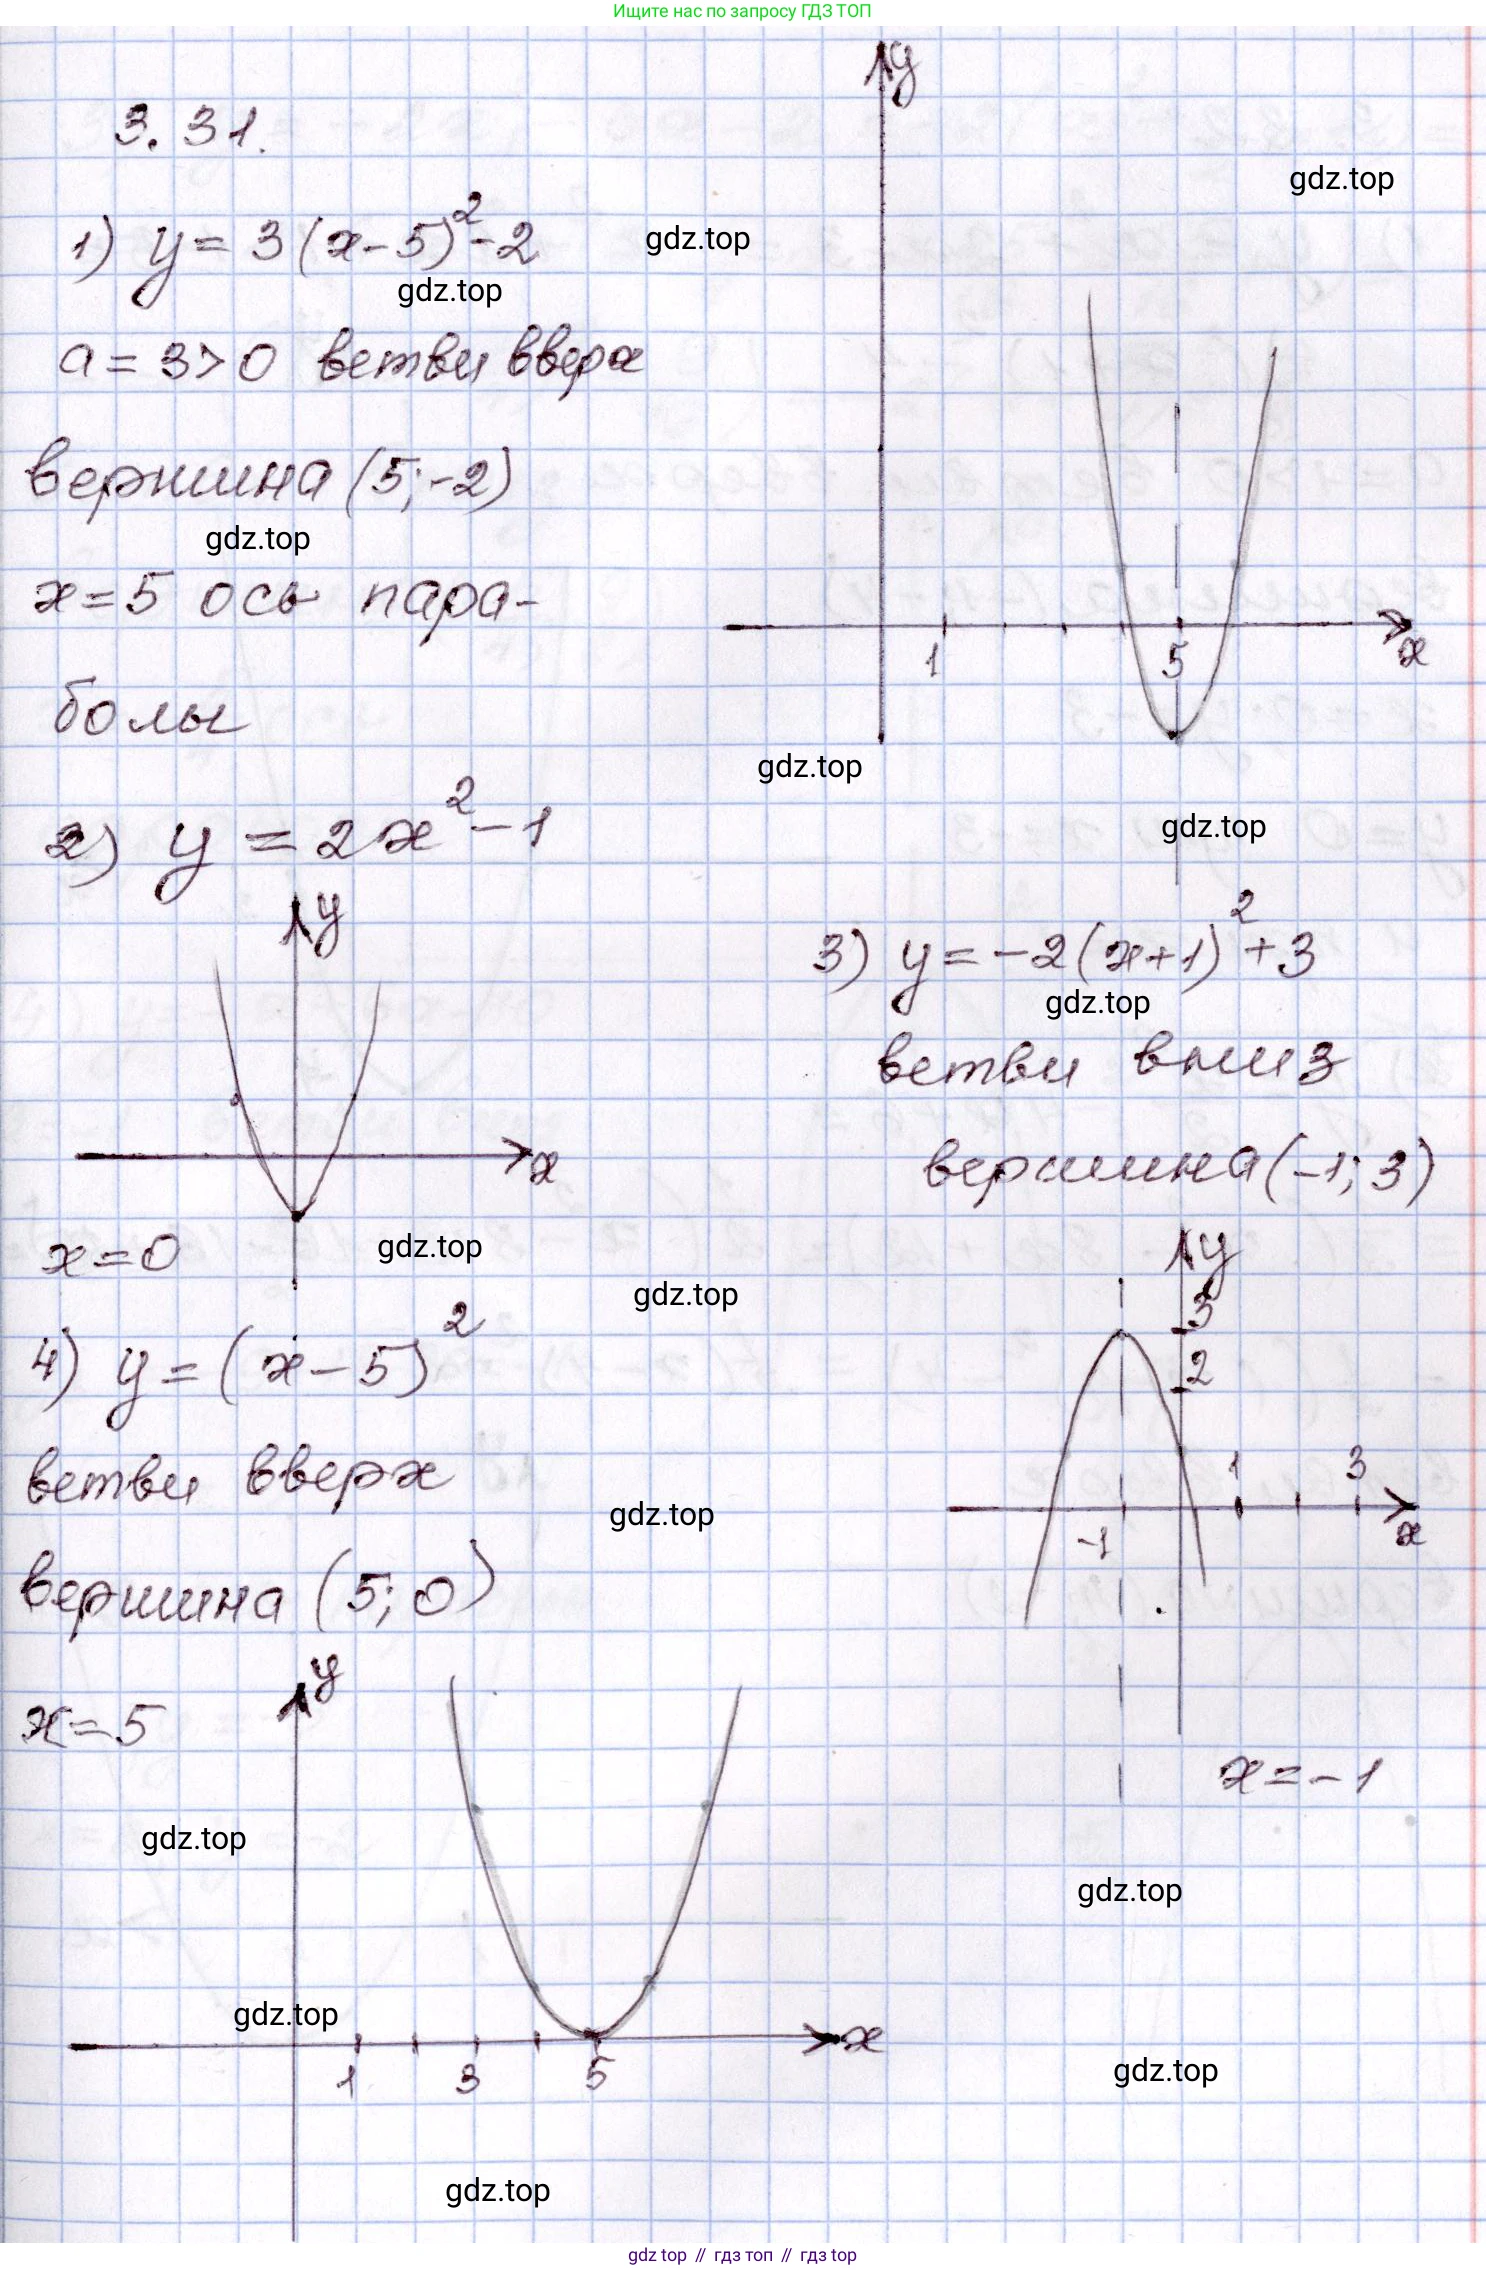 Ищите нас по запросу ГДЗ ТОП
3.31.
1) y = 3(x-5)²-2
gdz.top
gdz.top
a = 3>0 ветви вверх
вершина (5;-2)
gdz.top
x=5 ось пара-
болы
y
gdz.top
1
5
x
gdz.top
gdz.top
2) y = 2x²-1
y
x
x=0
gdz.top
gdz.top
3) y=-2(x+1)²+3
gdz.top
ветви вниз
вершина(-1; 3)
y
3
2
1
3
-1
x
x=-1
4) y=(x-5)²
ветви вверх
gdz.top
вершина (5; 0)
x=5
y
gdz.top
gdz.top
gdz.top
1
3
5
x
gdz.top
gdz.top
gdz top // гдз топ // gdz top